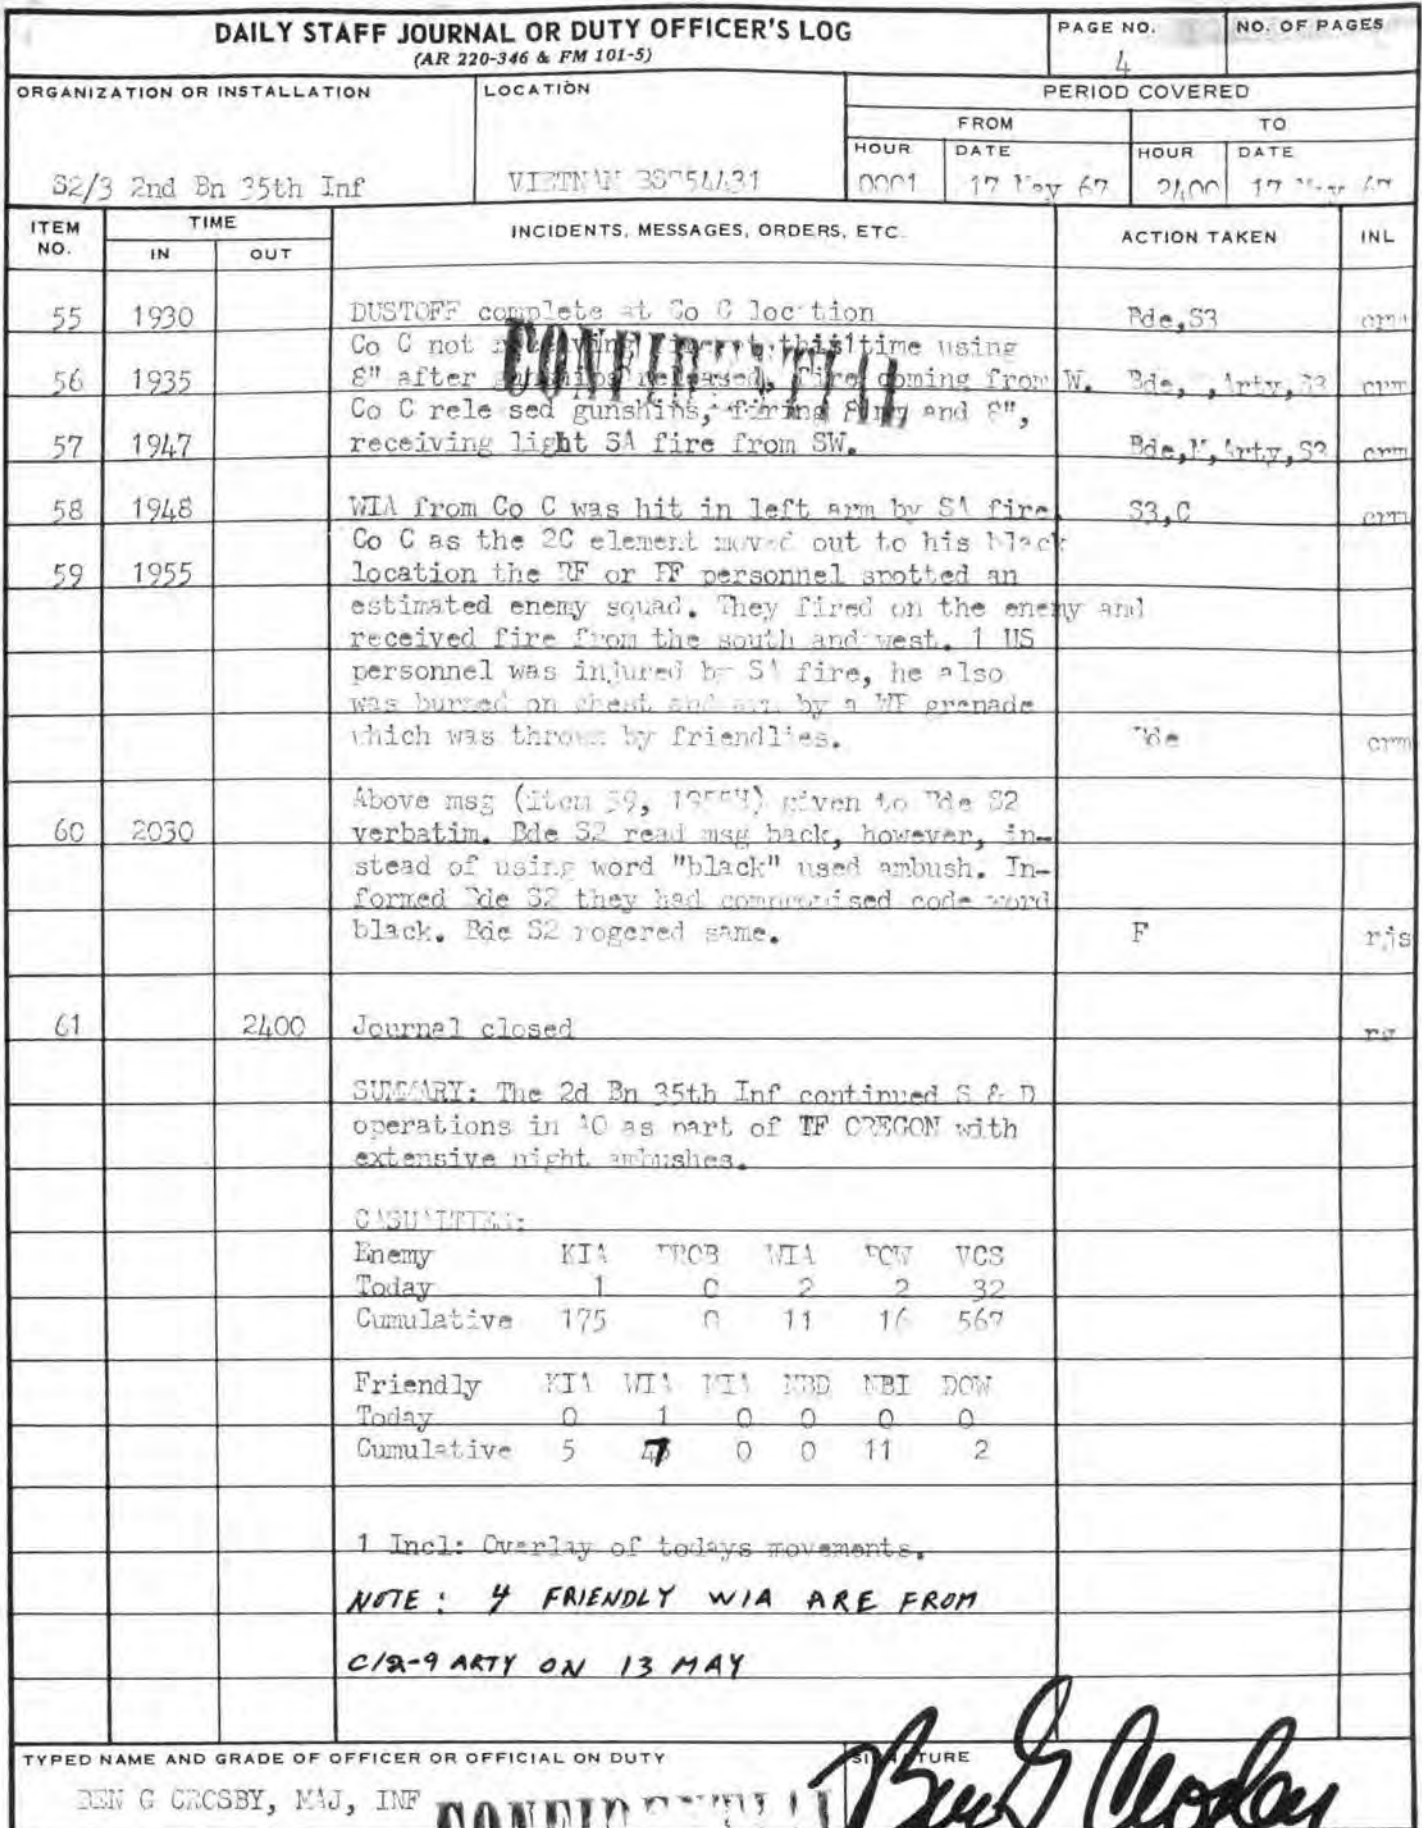 DAILY STAFF JOURNAL OR DUTY OFFICER'S LOG
(AR 220-346 & FM 101-5)
PAGE NO.
4
NO. OF PAGES
ORGANIZATION OR INSTALLATION
S2/3 2nd Bn 35th Inf
LOCATION
VIETNAM
PERIOD COVERED
FROM
TO
HOUR
DATE
HOUR
DATE
0001
17 May 67
2400
17 May 67
ITEM NO.
TIME
IN
OUT
INCIDENTS, MESSAGES, ORDERS, ETC.
ACTION TAKEN
INL
55 1930 DUSTOFF complete at Co C loc tion Bde,S3 crm
Co C not this time using
56 1935 8" after gunships released, fire coming from W. Bde, ,Arty,S3 crm
Co C rele sed gunships, firing and 8",
57 1947 receiving light SA fire from SW. Bde,M,Arty,S3 crm
58 1948 WIA from Co C was hit in left arm by SA fire. S3,C crm
Co C as the 2C element moved out to his black
59 1955 location the RF or PF personnel spotted an
estimated enemy squad. They fired on the enemy and
received fire from the south and west. 1 US
personnel was injured by SA fire, he also
was burned on chest and arm by a WP grenade
which was thrown by friendlies. Bde crm
Above msg (item 59, 1955H) given to Bde S2
60 2030 verbatim. Bde S2 read msg back, however, in-
stead of using word "black" used ambush. In-
formed Bde S2 they had compromised code word
black. Bde S2 rogered same. F rjs
61 2400 Journal closed
SUMMARY: The 2d Bn 35th Inf continued S & D
operations in AO as part of TF OREGON with
extensive night ambushes.
CASUALTIES:
Enemy KIA PROB WIA POW VCS
Today 1 0 2 2 32
Cumulative 175 0 11 16 567
Friendly KIA WIA MIA NBD NBI DOW
Today 0 1 0 0 0 0
Cumulative 5 0 0 11 2
1 Incl: Overlay of todays movements.
NOTE: 4 FRIENDLY WIA ARE FROM
C/2-9 ARTY ON 13 MAY
TYPED NAME AND GRADE OF OFFICER OR OFFICIAL ON DUTY
BEN G CROSBY, MAJ, INF
SIGNATURE
Ben G Crosby
CONFIDENTIAL
CONFIDENTIAL